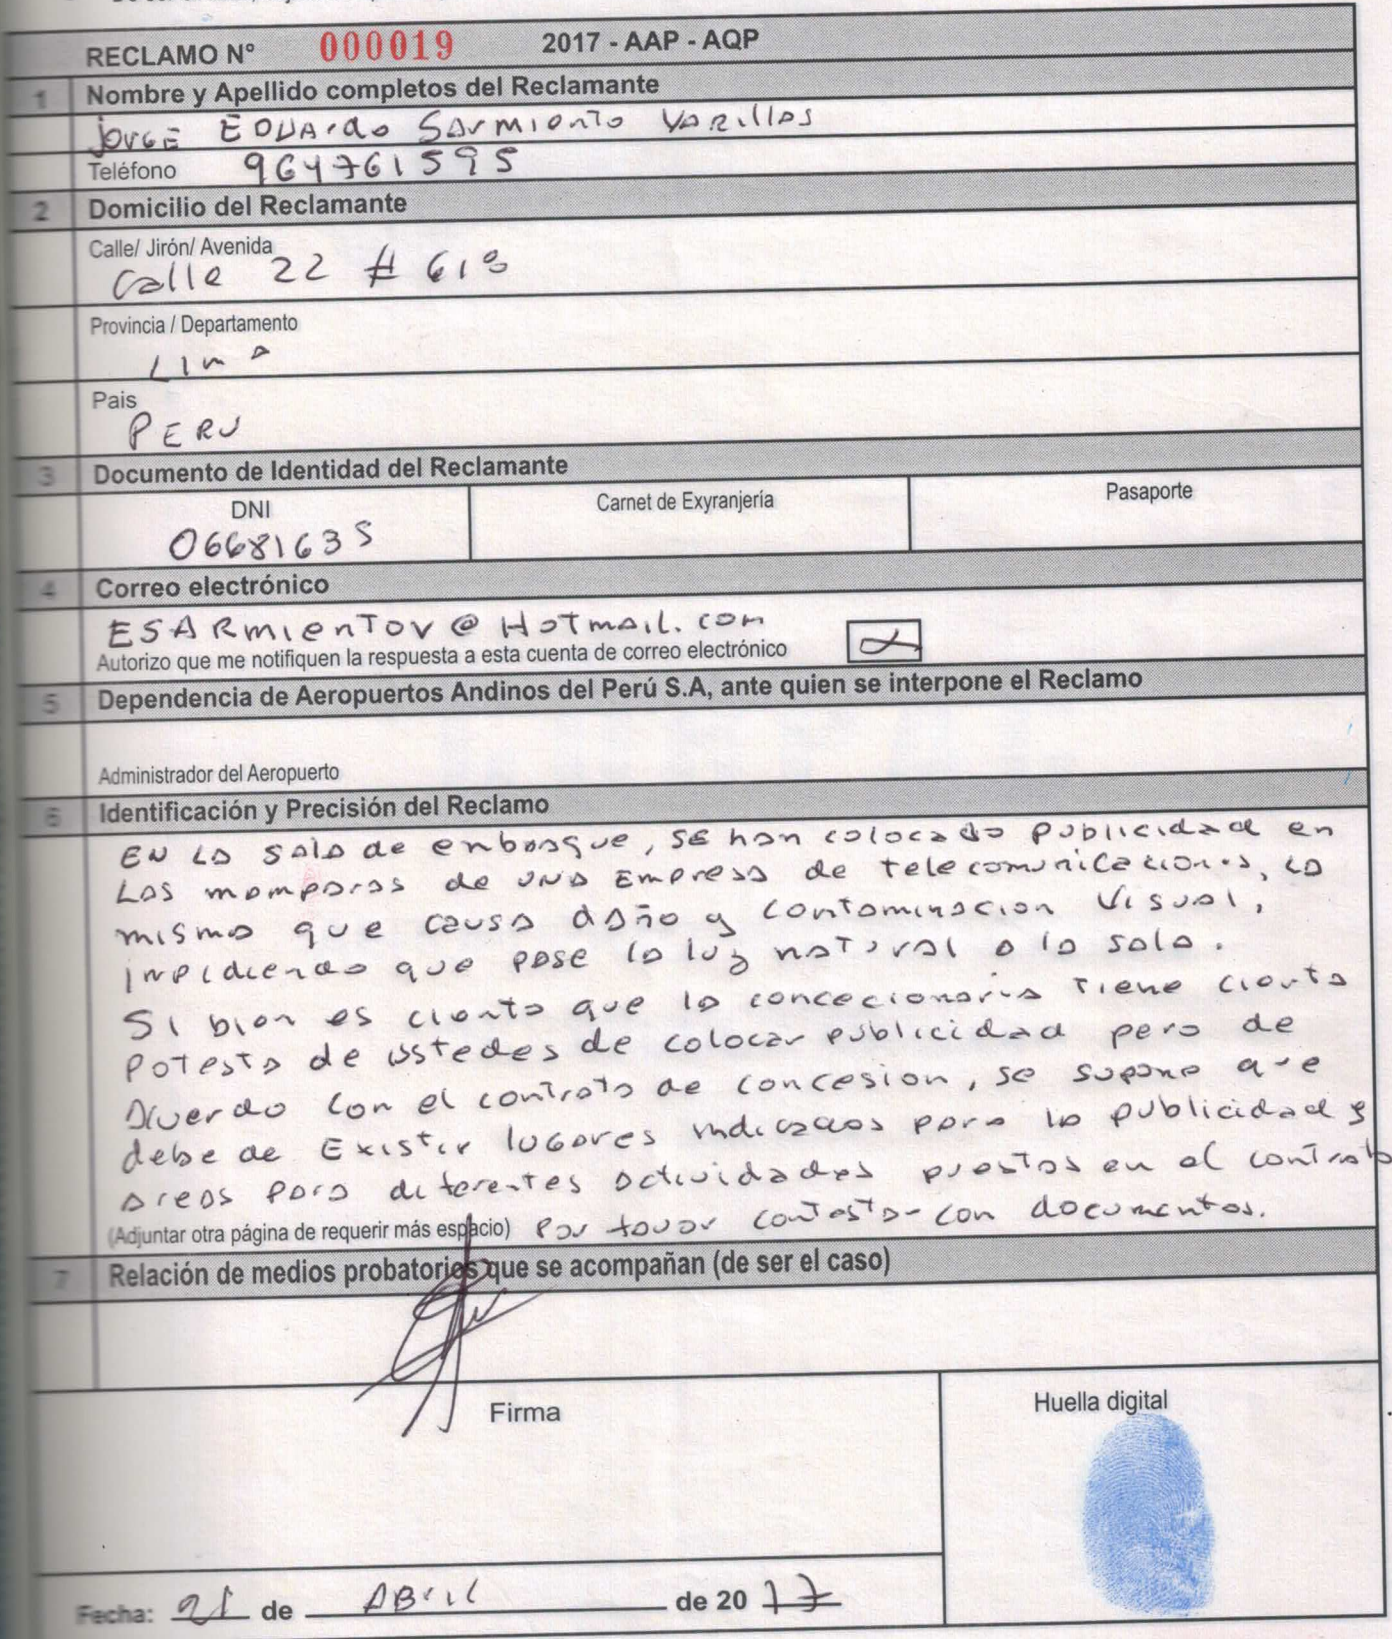 RECLAMO N° 000019 2017 - AAP - AQP
1 Nombre y Apellido completos del Reclamante
Jorge Eduardo Sarmiento Varillas
Teléfono 964761595
2 Domicilio del Reclamante
Calle/ Jirón/ Avenida
Calle 22 # 618
Provincia / Departamento
Lima
Pais
PERU
3 Documento de Identidad del Reclamante
DNI Carnet de Exyranjería Pasaporte
06681635
4 Correo electrónico
ESARmienTov@HoTmail.com
Autorizo que me notifiquen la respuesta a esta cuenta de correo electrónico
5 Dependencia de Aeropuertos Andinos del Perú S.A, ante quien se interpone el Reclamo
Administrador del Aeropuerto
6 Identificación y Precisión del Reclamo
EN La sala de enbarque, se han colocado publicidad en
Las mamparas de una Empresa de telecomunicaciones, la
misma que causa daño y contaminacion Visual,
impidiendo que pase la luz natural a la sala.
Si bien es cierto que la concecionaria tiene cierta
Potesta de ustedes de colocar publicidad pero de
Acuerdo con el contrato de concesion, se supone que
debe de Existir lugares indicados para la publicidad y
areas para diferentes actividades puestos en el contrato
(Adjuntar otra página de requerir más espacio) Por favor contestar con documentos.
7 Relación de medios probatorios que se acompañan (de ser el caso)
Firma Huella digital
Fecha: 21 de ABril de 2017